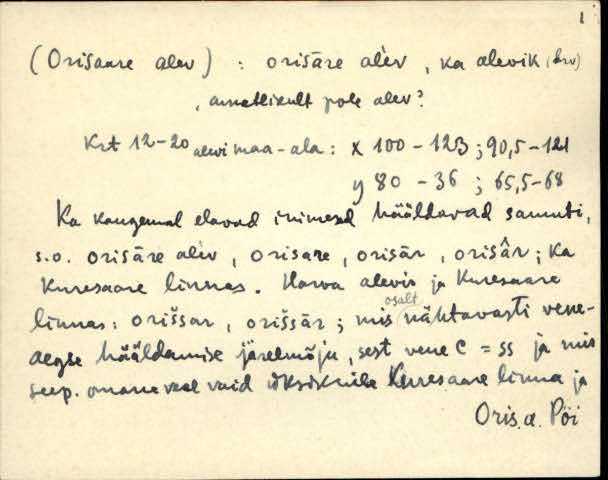 1
(Orissaare alev) : orisāre alèv, ka alevik (krv)
, ametlikult pole alev?
Krt 12-20 alevi maa-ala: x 100 - 123 ; 90,5 - 121
y 80 - 36 ; 65,5 - 68
Ka kaugemal elavad inimesed hääldavad samuti,
s.o. orisāre alèv, orisare, orisār, orisâr; ka
Kuresaare linnas. Harva alevis ja Kuresaare
linnas: oriššar, oriššār; mis osalt nähtavasti vene-
aegse hääldamise järelmõju, sest vene c = ss ja mis
seep. omane veel vaid üksikuile Kuresaare linna ja
Oris. a. Pöi